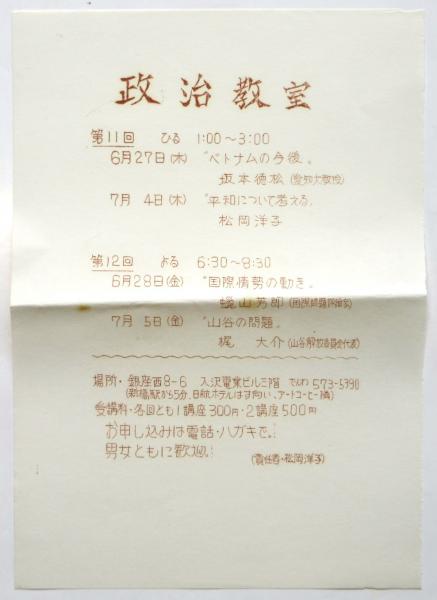 政治教室
第11回 ひる 1:00～3:00
6月27日(木) "ベトナムの今後"
坂本徳松(愛知大教授)
7月 4日(木) "平和について考える"
松岡洋子
第12回 よる 6:30～8:30
6月28日(金) "国際情勢の動き"
蜷山芳郎(国際問題評論家)
7月 5日(金) "山谷の問題"
梶 大介(山谷解放委員会代表)
場所・銀座西8-6 入沢電業ビル三階 でんわ 573-5390
(新橋駅から5分、日航ホテルはす向い、アートコーヒー隣)
受講料・各回とも1講座300円・2講座500円
お申し込みは電話・ハガキで。
男女ともに歓迎。
(責任者・松岡洋子)